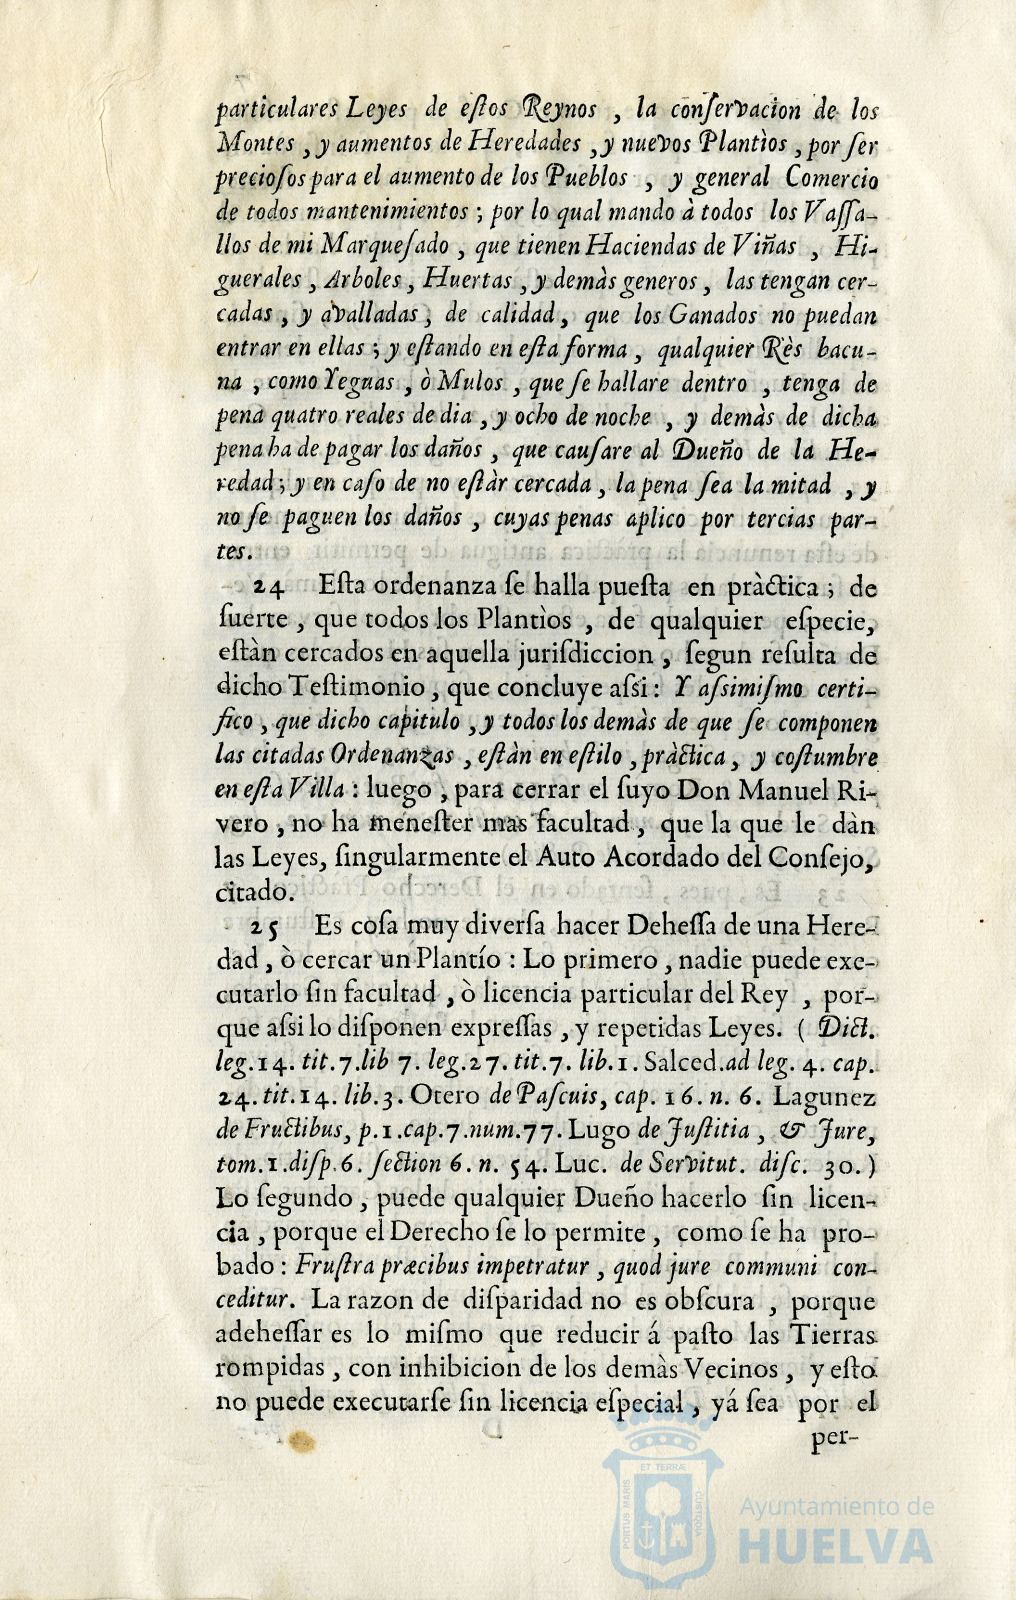 particulares Leyes de eſtos Reynos , la conſervacion de los
Montes , y aumentos de Heredades , y nuevos Plantìos , por ſer
precioſos para el aumento de los Pueblos , y general Comercio
de todos mantenimientos ; por lo qual mando à todos los Vaſſa-
llos de mi Marqueſado , que tienen Haciendas de Viñas , Hi-
guerales , Arboles , Huertas , y demàs generos , las tengan cer-
cadas , y avalladas , de calidad , que los Ganados no puedan
entrar en ellas ; y eſtando en eſta forma , qualquier Rès bacu-
na , como Yeguas , ò Mulos , que ſe hallare dentro , tenga de
pena quatro reales de dia , y ocho de noche , y demàs de dicha
pena ha de pagar los daños , que cauſare al Dueño de la He-
redad ; y en caſo de no eſtàr cercada , la pena ſea la mitad , y
no ſe paguen los daños , cuyas penas aplico por tercias par-
tes.
24 Eſta ordenanza ſe halla pueſta en pràctica ; de
ſuerte , que todos los Plantìos , de qualquier eſpecie,
eſtàn cercados en aquella juriſdiccion , ſegun reſulta de
dicho Teſtimonio , que concluye aſsi : Y aſsimiſmo certi-
fico , que dicho capitulo , y todos los demàs de que ſe componen
las citadas Ordenanzas , eſtàn en eſtilo , pràctica , y coſtumbre
en eſta Villa : luego , para cerrar el ſuyo Don Manuel Ri-
vero , no ha meneſter mas facultad , que la que le dàn
las Leyes, ſingularmente el Auto Acordado del Conſejo,
citado.
25 Es coſa muy diverſa hacer Deheſſa de una Here-
dad , ò cercar un Plantío : Lo primero , nadie puede exe-
cutarlo ſin facultad , ò licencia particular del Rey , por-
que aſsi lo diſponen expreſſas , y repetidas Leyes. ( Dict.
leg.14. tit.7.lib 7. leg.27. tit.7. lib.1. Salced.ad leg. 4. cap.
24. tit.14. lib.3. Otero de Paſcuis, cap. 16. n. 6. Lagunez
de Fructibus, p.1.cap.7.num.77. Lugo de Juſtitia , & Jure,
tom.1.diſp.6. ſection 6. n. 54. Luc. de Servitut. diſc. 30. )
Lo ſegundo , puede qualquier Dueño hacerlo ſin licen-
cia , porque el Derecho ſe lo permite , como ſe ha pro-
bado : Fruſtra præcibus impetratur , quod jure communi con-
ceditur. La razon de diſparidad no es obſcura , porque
adeheſſar es lo miſmo que reducir á paſto las Tierras
rompidas , con inhibicion de los demàs Vecinos , y eſto
no puede executarſe ſin licencia eſpecial , yá ſea por el
per-
PORTUS MARIS
ET TERRÆ
CUSTODIA
Ayuntamiento de
HUELVA